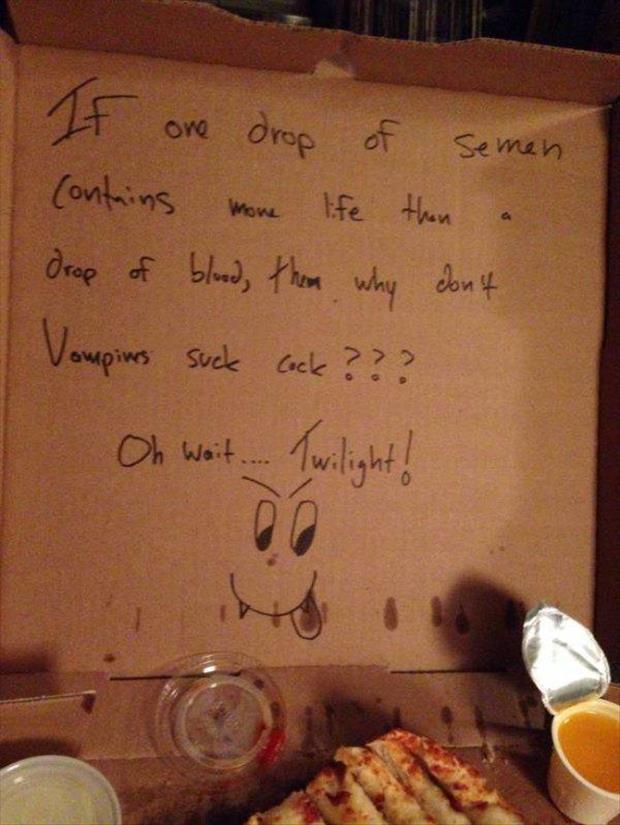 If one drop of semen
Contains more life than a
drop of blood, then why don't
Vampires suck cock???
Oh wait.... Twilight!